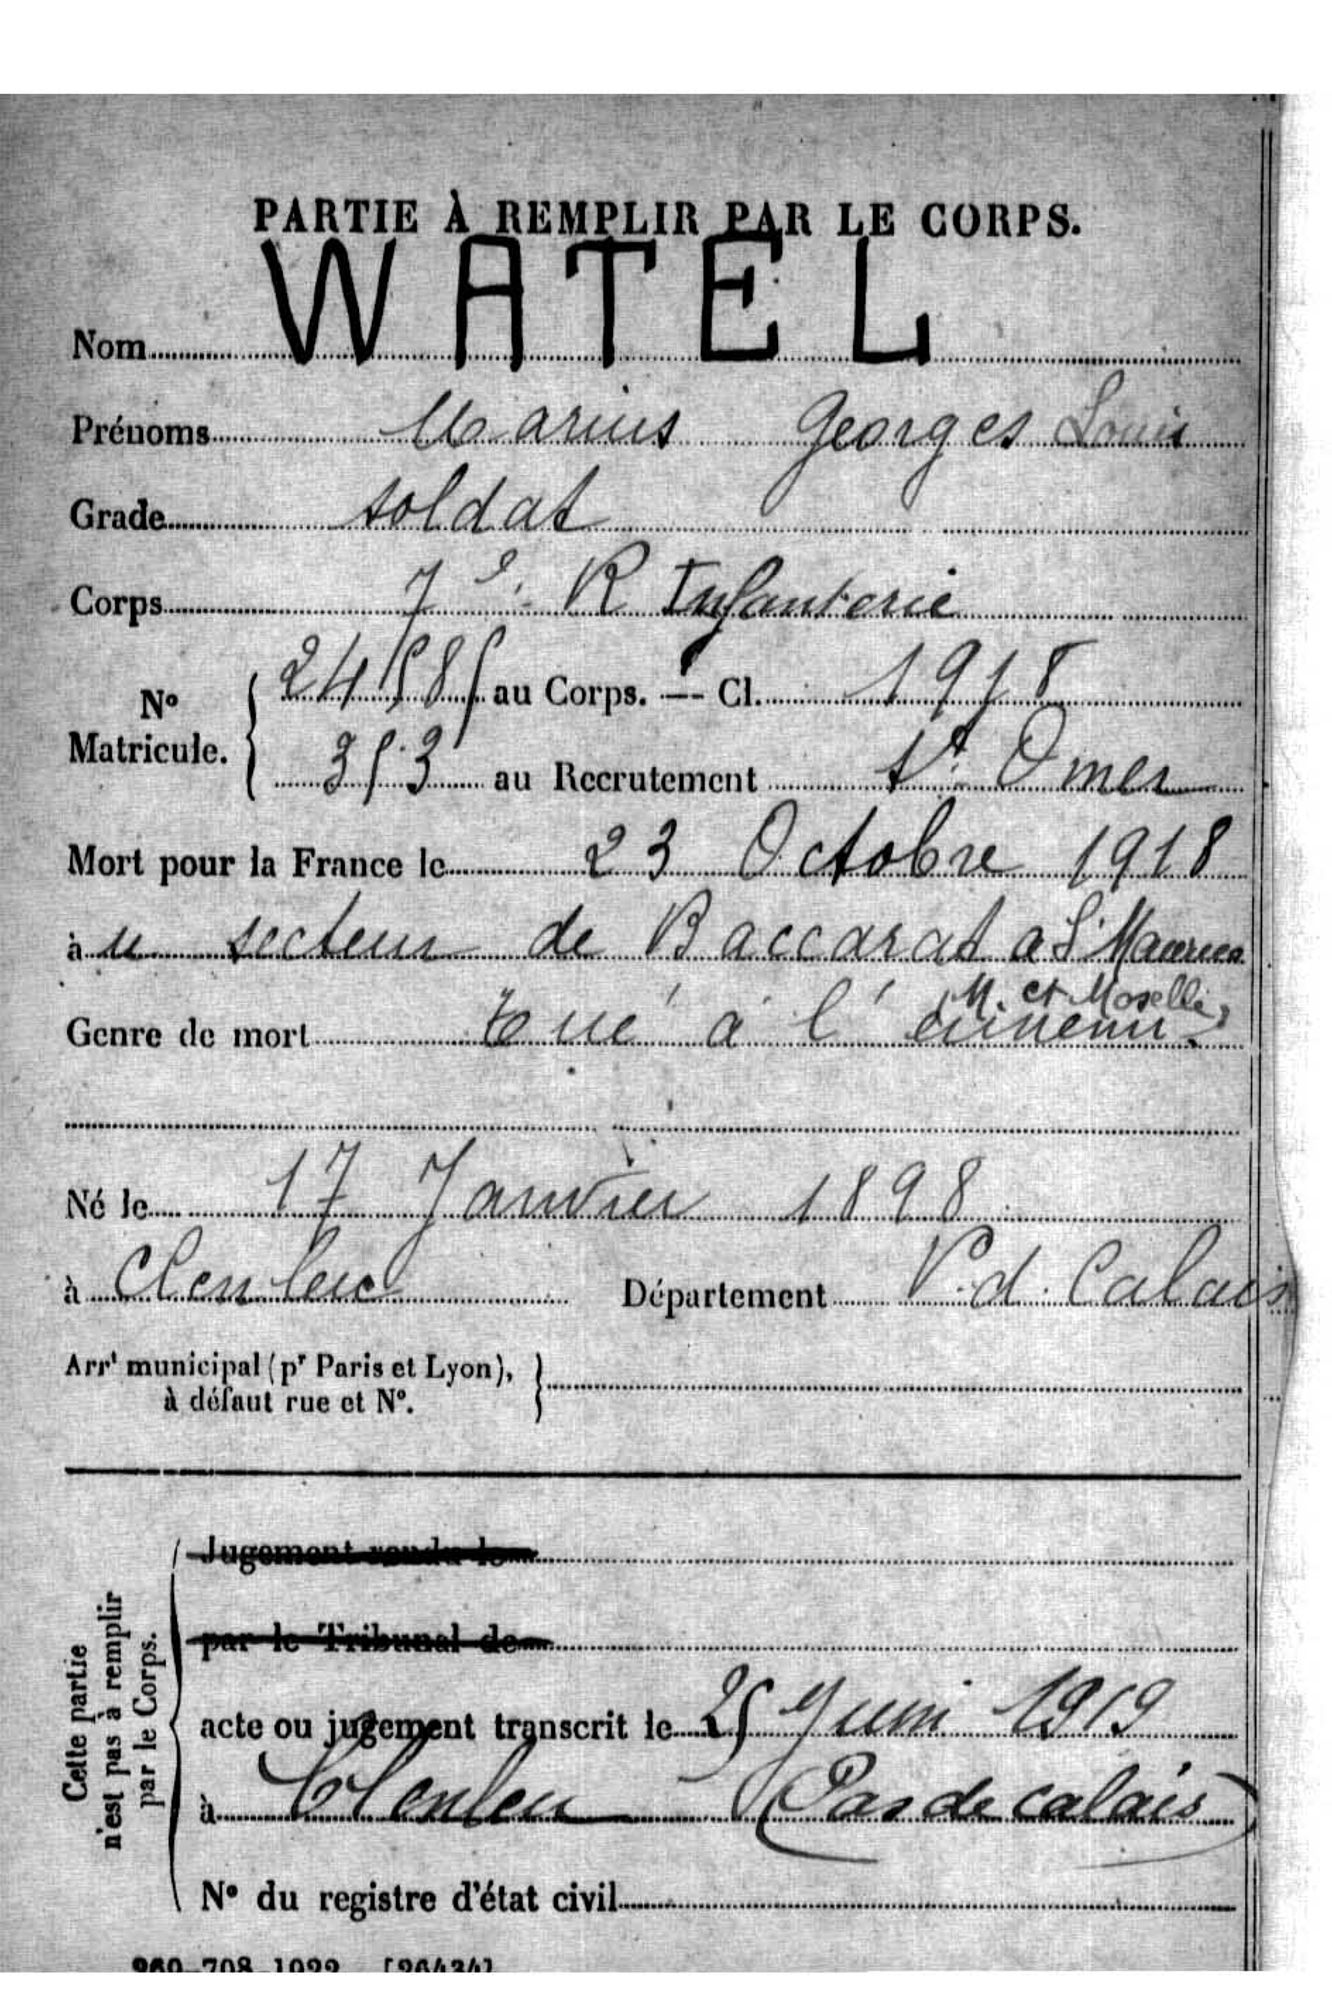 PARTIE À REMPLIR PAR LE CORPS.
Nom WATEL
Prénoms Marius Georges Louis
Grade soldat
Corps 7e R Infanterie
Nº Matricule. 24585 au Corps. — Cl. 1918
353 au Recrutement St Omer
Mort pour la France le 23 Octobre 1918
à u secteur de Baccarat a St Maurice
M. et Moselle
Genre de mort tué à l'ennemi.
Né le 17 Janvier 1898
à Clenleu Département P. d. Calais
Arrt municipal (pr Paris et Lyon),
à défaut rue et Nº.
Cette partie
n'est pas à remplir
par le Corps.
Jugement rendu le
par le Tribunal de
acte ou jugement transcrit le 25 Juin 1919
à Clenleu (Pas de Calais)
Nº du registre d'état civil
260-708-1922. [26434]